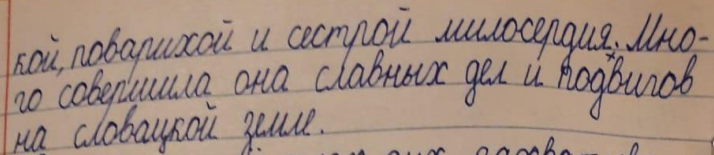 кой, поварихой и сестрой милосердия. Мно-
го совершила она славных дел и подвигов
на словацкой земле.